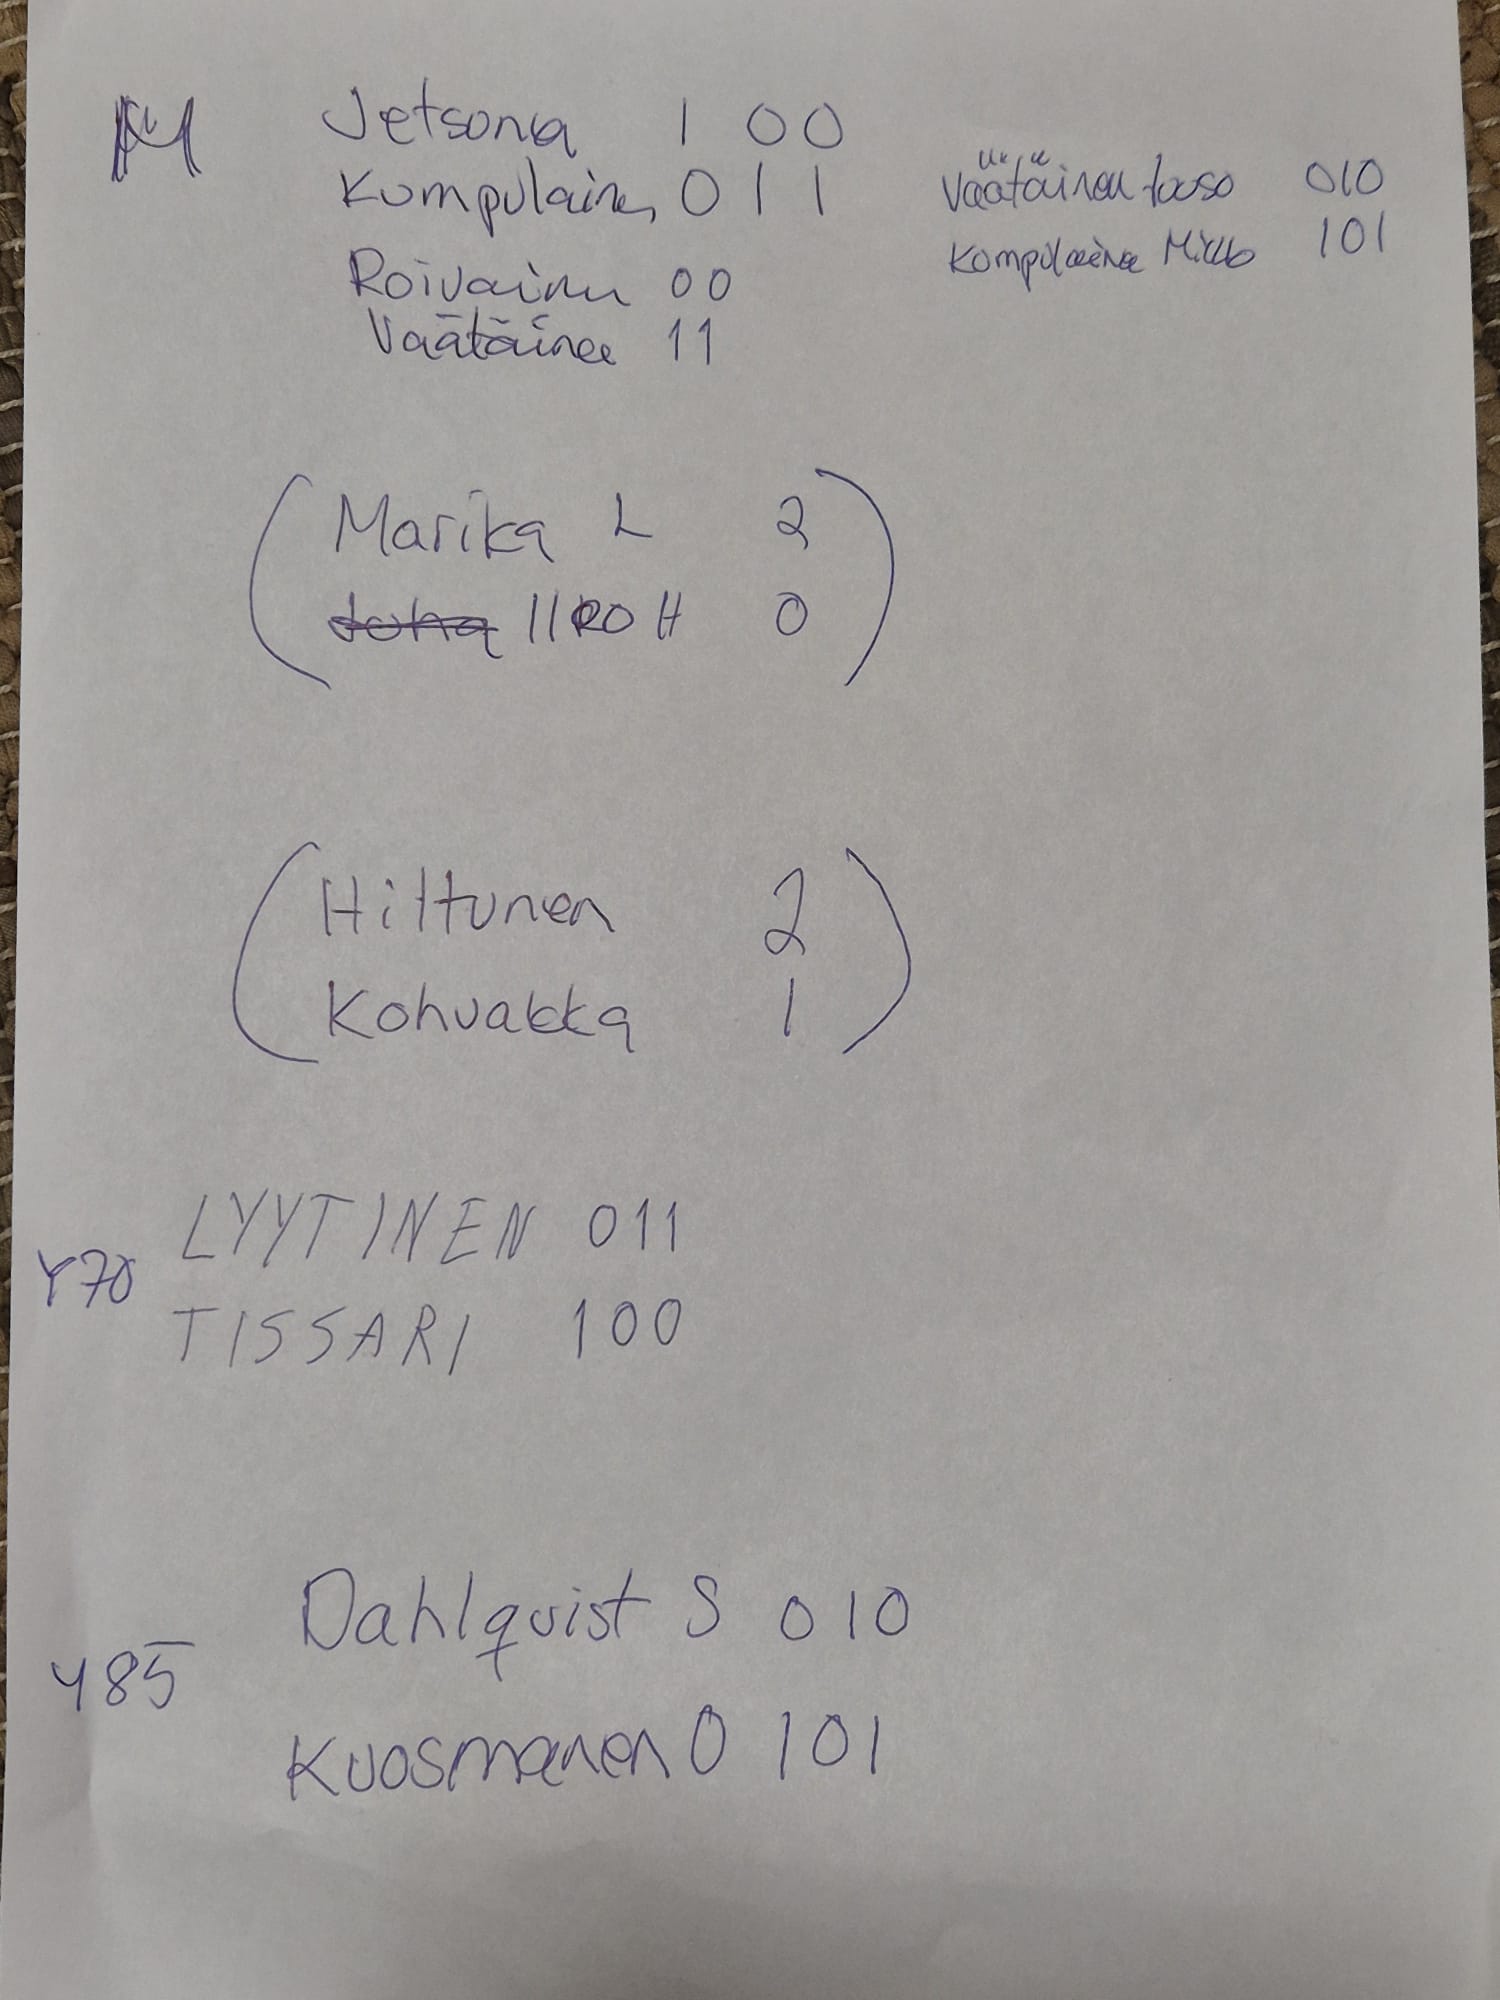 M Jetsonia 1 0 0
Kumpulainen 0 1 1
Roivainen 00
Väätäinen 11
Väätäinen 010
Kompulainen 101
Marika L 2
IIRO H 0
Hiltunen 2
Kohvakka 1
LYYTINEN 011
Y70
TISSARI 100
Dahlquist S 010
Y85
Kuosmanen O 101